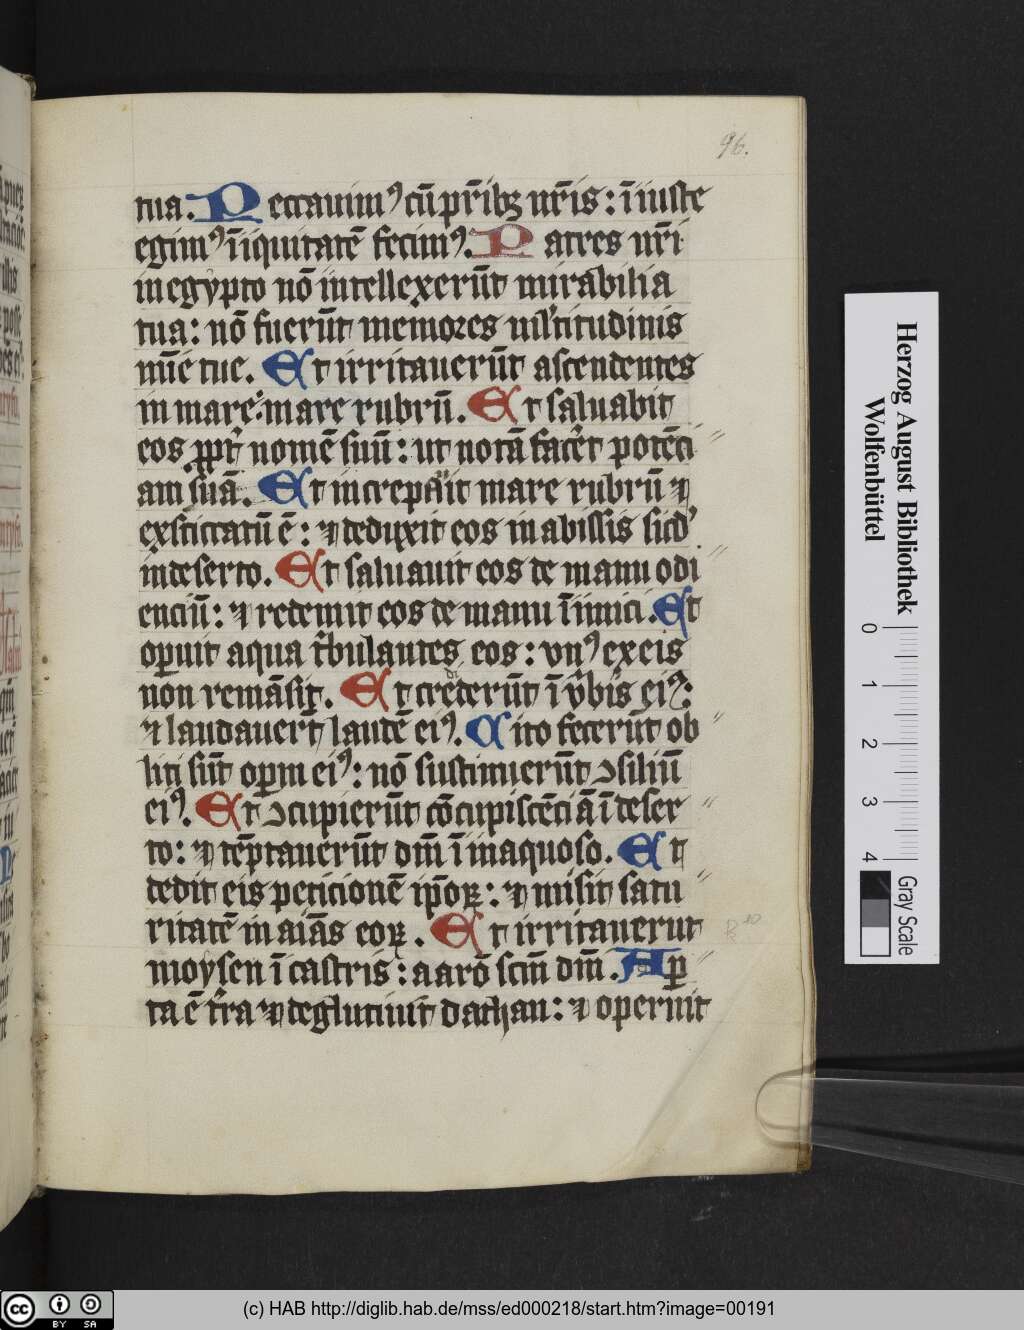 96.
tua. Peccauimꝰ cū pr̄ibꝫ nr̄is : īiuste
egimꝰ īiquitatē fecimꝰ. Patres nr̄i
in egypto nō intellexerūt mirabilia
tua : nō fuerūt memores ml̄titudinis
mīe tue. Et irritauerūt ascendentes
in mare : mare rubrū. Et saluabit
eos ꝓpt̄ nomē suū : ut notā facēt potēci
am suā. Et increpauit mare rubrū ⁊
exsiccatū ē : ⁊ deduxit eos in abissis sicd̓
in deserto. Et saluauit eos de manu odi
enciū : ⁊ redemit eos de manu īimici. Et
oꝑuit aqua tˀbulantes eos : vnꝰ ex eis
non remāsit. Et crediderūt ī v̓bis eiꝰ :
⁊ laudauerūt laudē eiꝰ. Cito fecerūt ob
liti sūt oꝑum eiꝰ : nō sustinuerūt ꝯsiliū
eiꝰ. Et ꝯcupierūt cōcupiscēciā ī deser
to : ⁊ tēptauerūt dm̄ ī inaquoso. Et
dedit eis peticionē ip̄oꝝ : ⁊ misit satu
ritatē in aīas eoꝝ. Et irritauerut
moysen ī castris : aarō scm̄ dm̄. Aꝑ
ta ē t̓ra ⁊ deglutiuit dathan : ⁊ operuit
Herzog August Bibliothek
Wolfenbüttel
0 1 2 3 4
Gray Scale
cc BY SA
(c) HAB http://diglib.hab.de/mss/ed000218/start.htm?image=00191